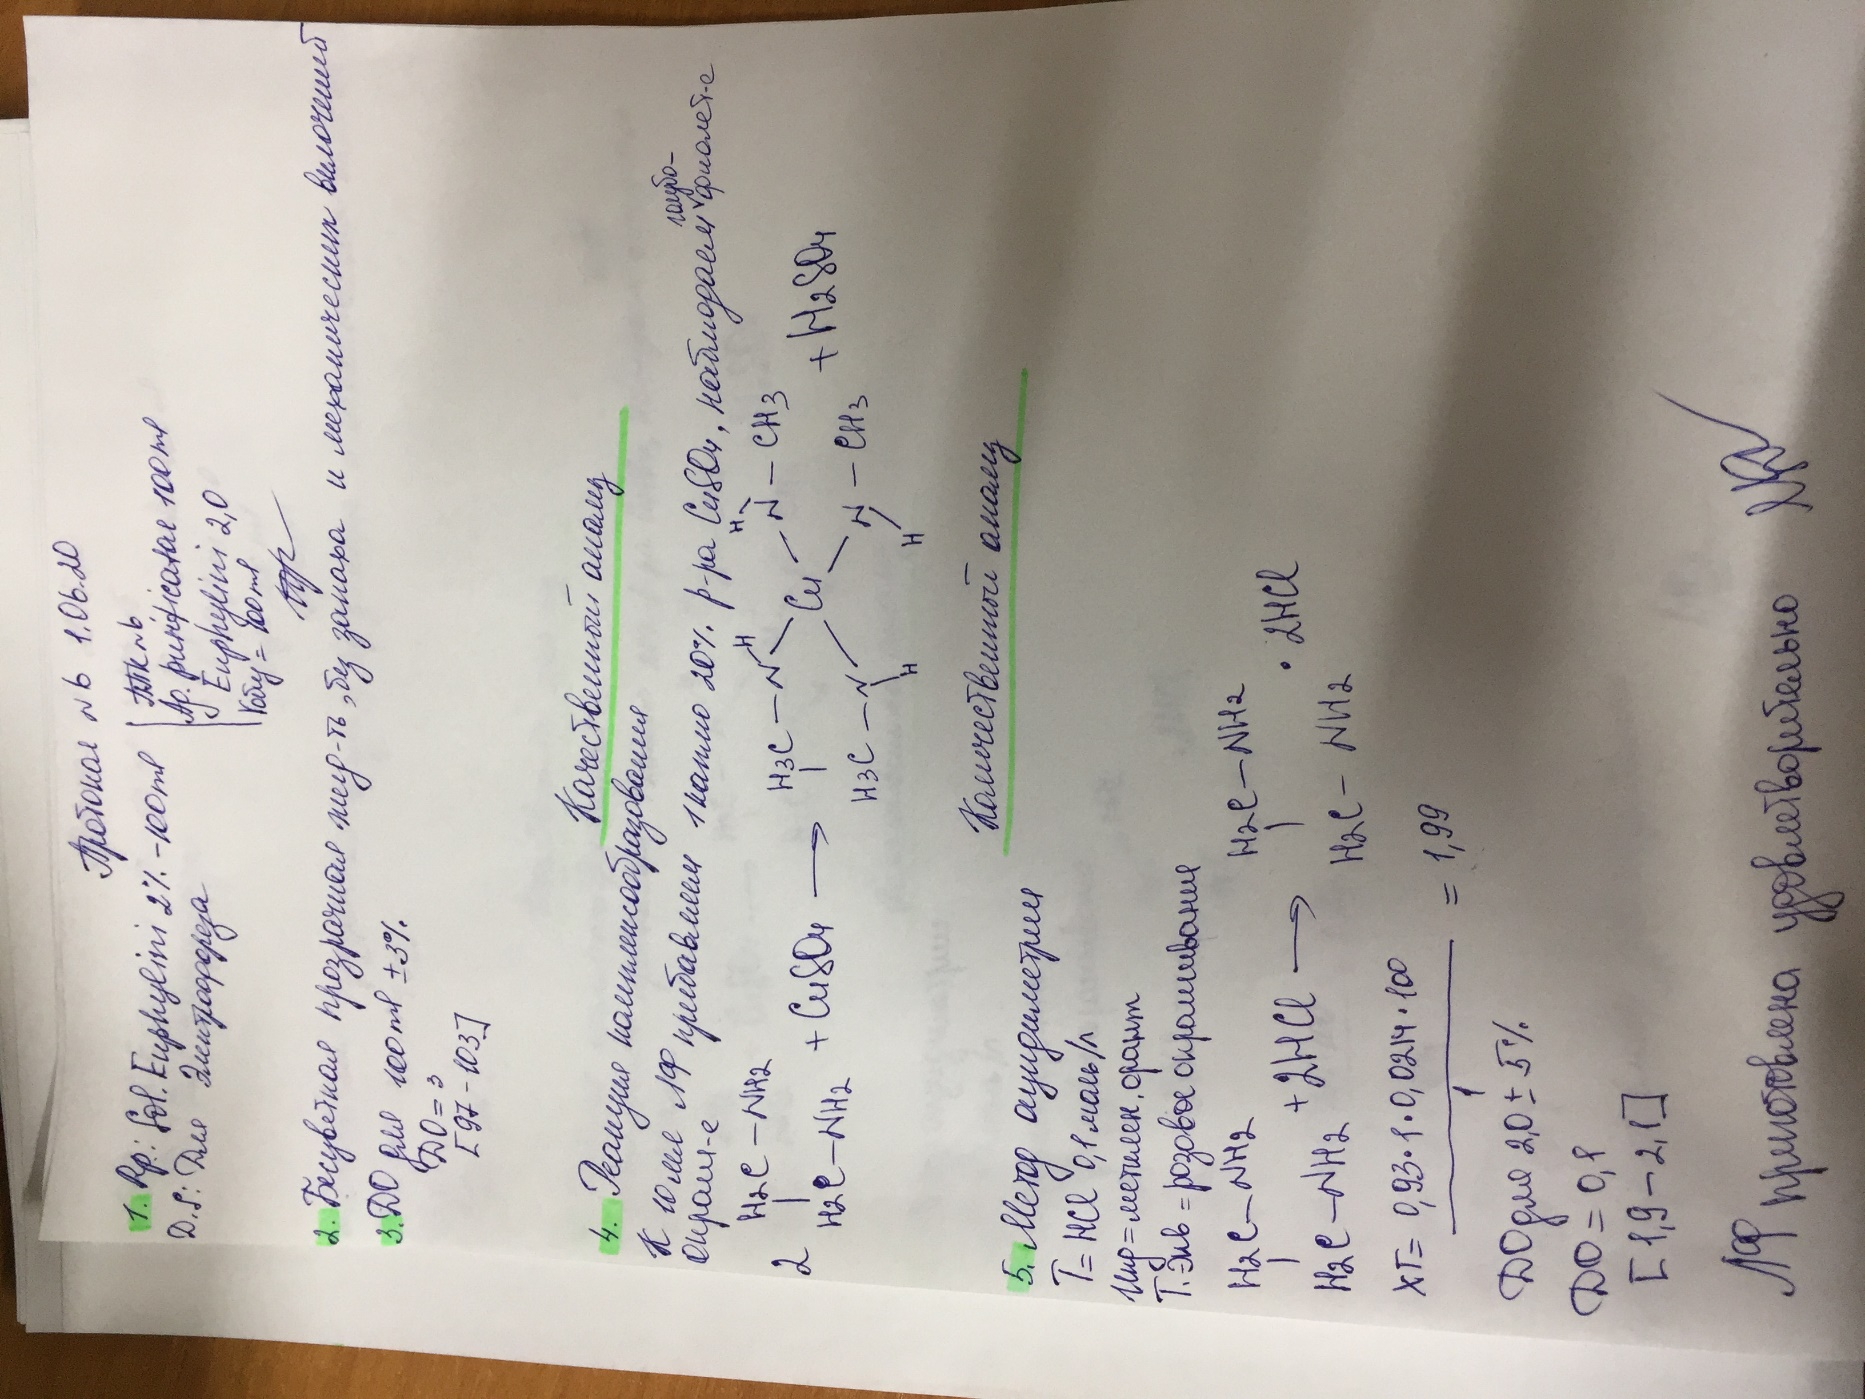 Протокол №6 1.06.20
1. Rp.: Sol. Euphylini 2% - 100ml
D.S: Для Электрофореза
ППК №6
Ap. purificatae 100ml
Euphylini 2,0
Vобщ = 100ml
2. Бесцветная прозрачная жид-ть, без запаха и механических включений
3. ДО для 100ml ±3%.
ДО = 3
[97 - 103]
Качественный анализ
4. Реакция комплексообразования
К 10 мл ЛФ прибавляем 1 каплю 20% р-ра CuSO4, наблюдаем голубо-фиолет-е
окраш-е
2 H2C - NH2
H2C - NH2
+ CuSO4 ⟶
H3C - N H
H3C - N H
Cu
H N - CH3
N H - CH3
+ H2SO4
Количественный анализ
5. Метод ацидиметрии
T = HCl 0,1 моль/л
Инд = метилен. оранж
Т.экв = розовое окрашивание
H2C - NH2
H2C - NH2
+ 2HCl ⟶
H2C - NH2
H2C - NH2
· 2HCl
XГ = 0,93 · 1 · 0,0214 · 100 = 1,99
1
ДО для 2,0 ± 5%
ДО = 0,1
[1,9 - 2,1]
ЛФ приготовлена удовлетворительно